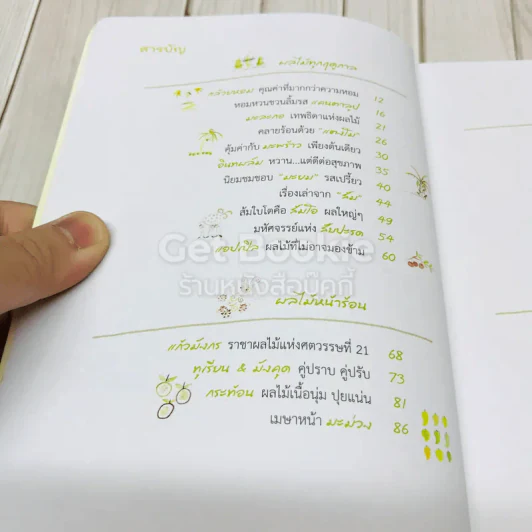 สารบัญ
ผลไม้ทุกฤดูกาล
กล้วยหอม คุณค่าที่มากกว่าความหอม 12
หอมหวนชวนลิ้มรส แคนตาลูป 16
มะละกอ เทพธิดาแห่งผลไม้ 21
คลายร้อนด้วย "แตงโม" 26
คุ้มค่ากับ มะพร้าว เพียงต้นเดียว 30
อินทผลัม หวาน...แต่ดีต่อสุขภาพ 35
นิยมชมชอบ "มะยม" รสเปรี้ยว 40
เรื่องเล่าจาก "ส้ม" 44
ส้มใบโตคือ ส้มโอ ผลใหญ่ๆ 49
มหัศจรรย์แห่ง สับปะรด 54
แอปเปิ้ล ผลไม้ที่ไม่อาจมองข้าม 60
Get Bookie
ร้านหนังสือบุ๊คกี้
ผลไม้หน้าร้อน
แก้วมังกร ราชาผลไม้แห่งศตวรรษที่ 21 68
ทุเรียน & มังคุด คู่ปราบ คู่ปรับ 73
กระท้อน ผลไม้เนื้อนุ่ม ปุยแน่น 81
เมษาหน้า มะม่วง 86